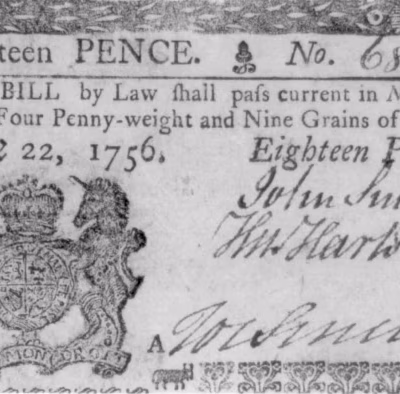 teen PENCE. No. 68
BILL by Law ſhall paſs current in
Four Penny-weight and Nine Grains of
22, 1756. Eighteen P
John
A
MON DROIT